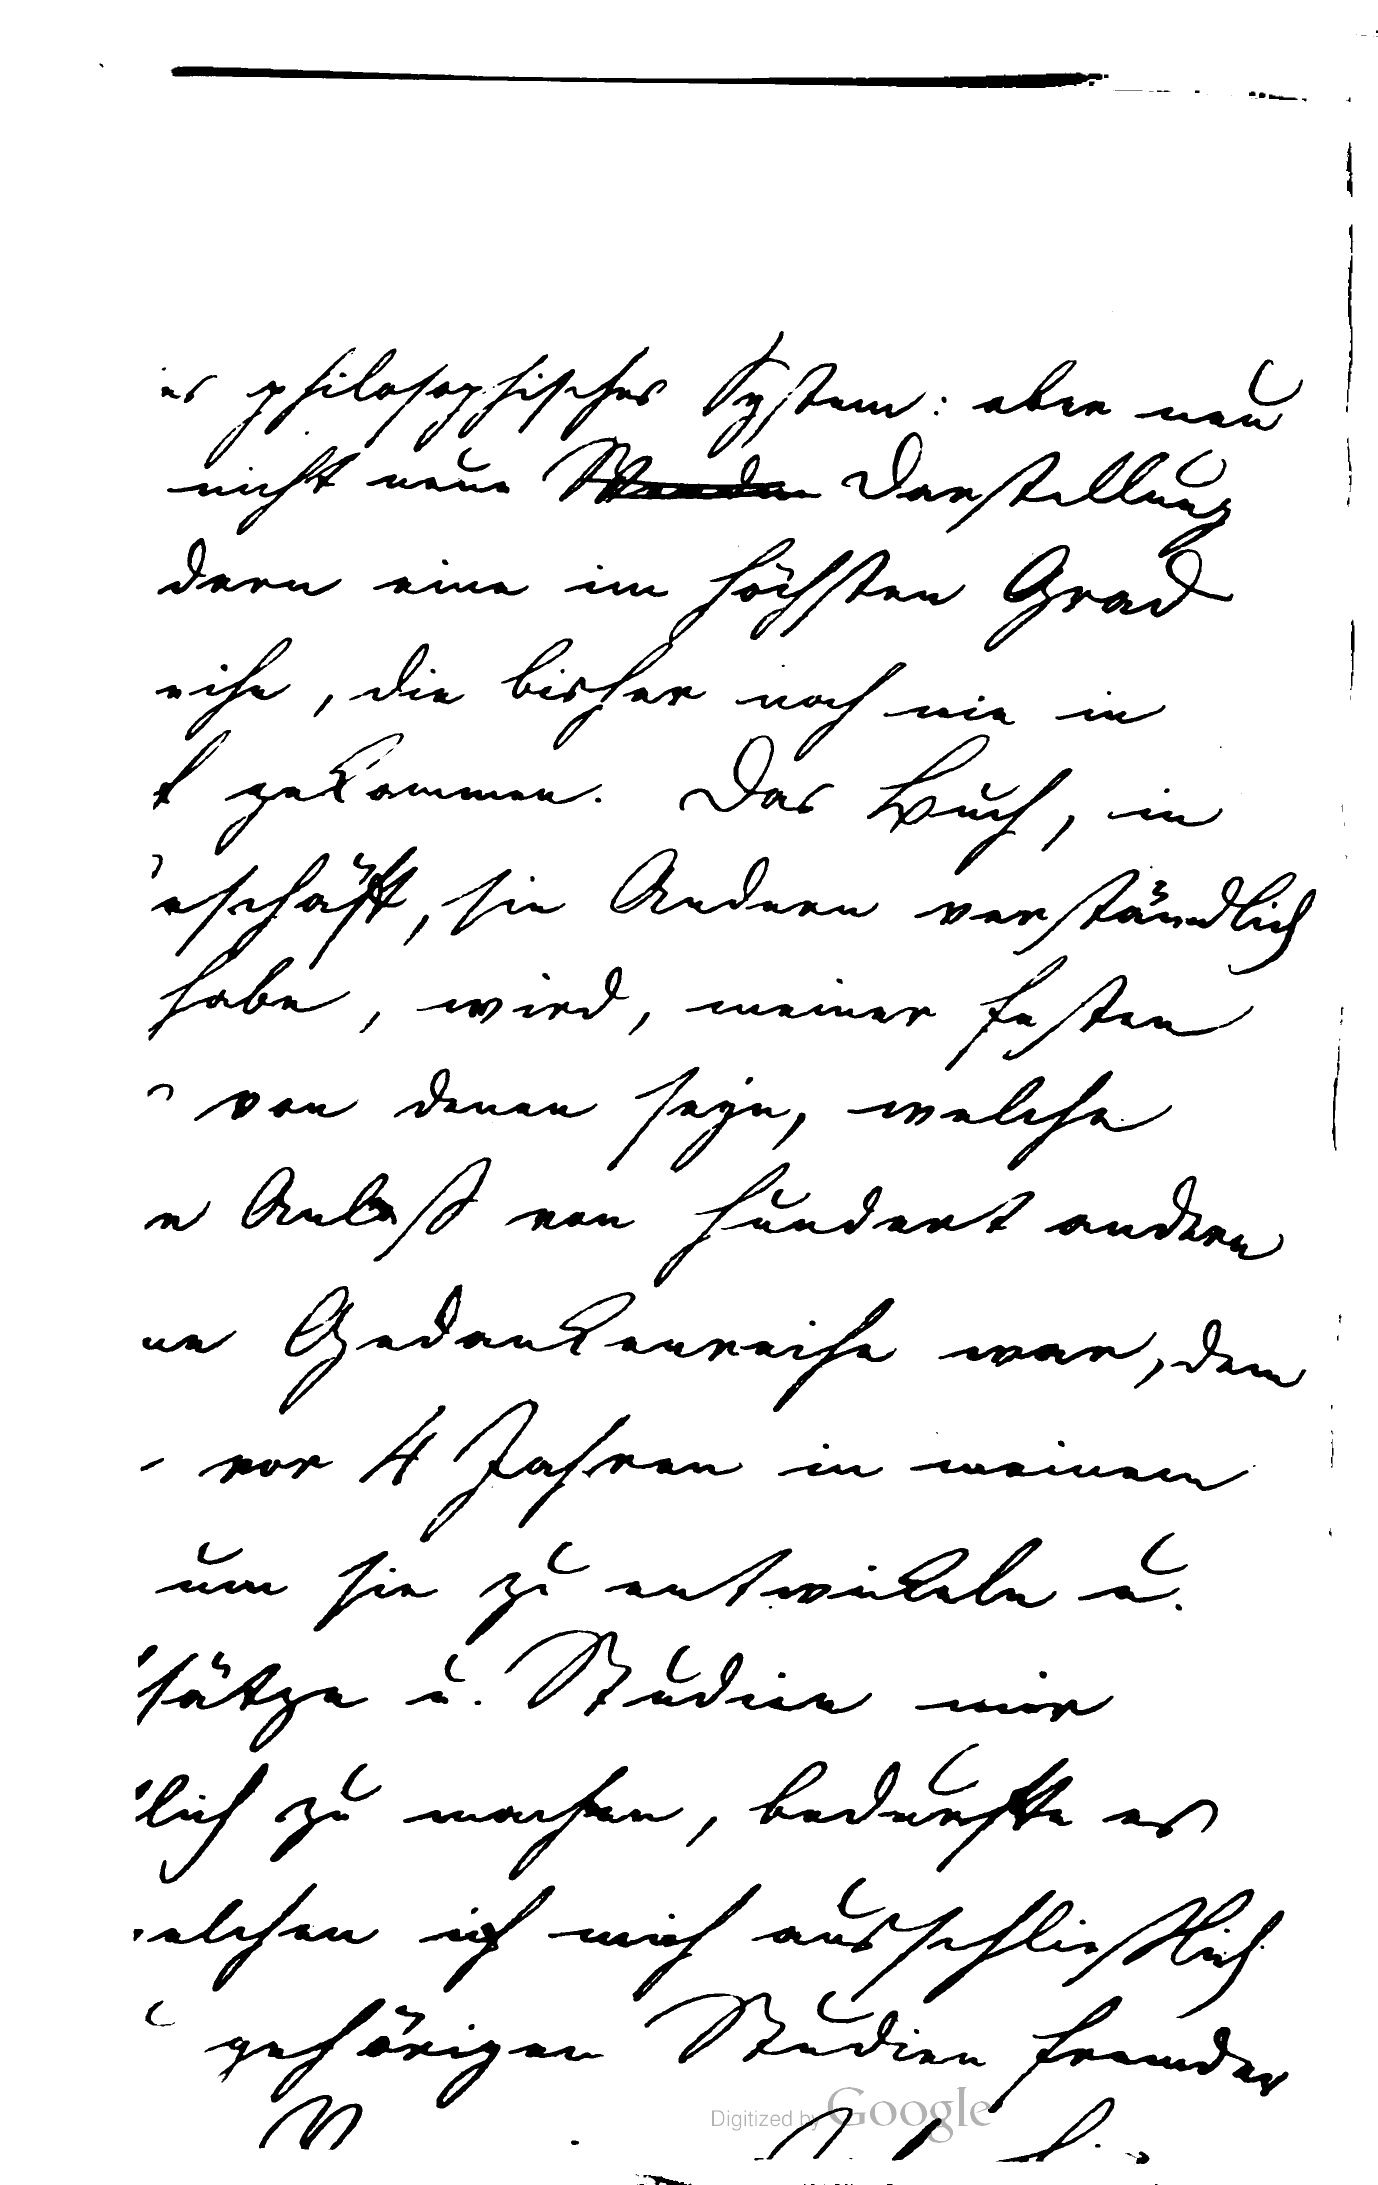 es philosophisches System: aber neu
nicht neue Darstellung
dern eine im höchsten Grad
eihe, die bisher noch nie in
t gekommen. Das Buch, in
eschäft, sie Andern verständlich
habe, wird, meiner festen
von denen seyn, welche
n Anlaß von hundert andern
ne Gedankenreihe war, dem
vor 4 Jahren in meinem
um sie zu entwickeln u.
sätze u. Studien mir
lich zu machen, bedurfte es
elchen ich mich ausschließlich
gehörigen Studien fremder
Digitized by Google